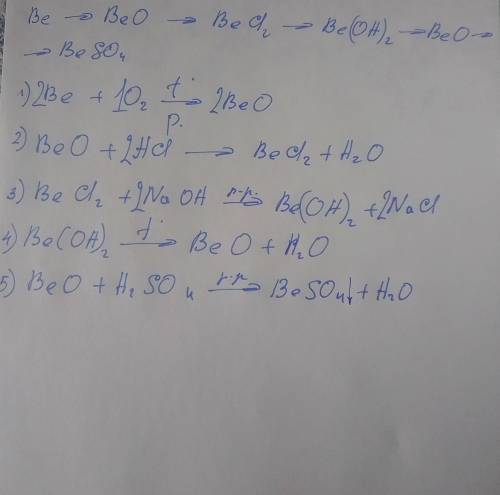 Be → BeO → BeCl₂ → Be(OH)₂ → BeO →
→ BeSO₄
1) 2Be + 1O₂ →t°p. 2BeO
2) BeO + 2HCl → BeCl₂ + H₂O
3) BeCl₂ + 2NaOH →р-р. Be(OH)₂ + 2NaCl
4) Be(OH)₂ →t° BeO + H₂O
5) BeO + H₂SO₄ →р-р BeSO₄↓ + H₂O